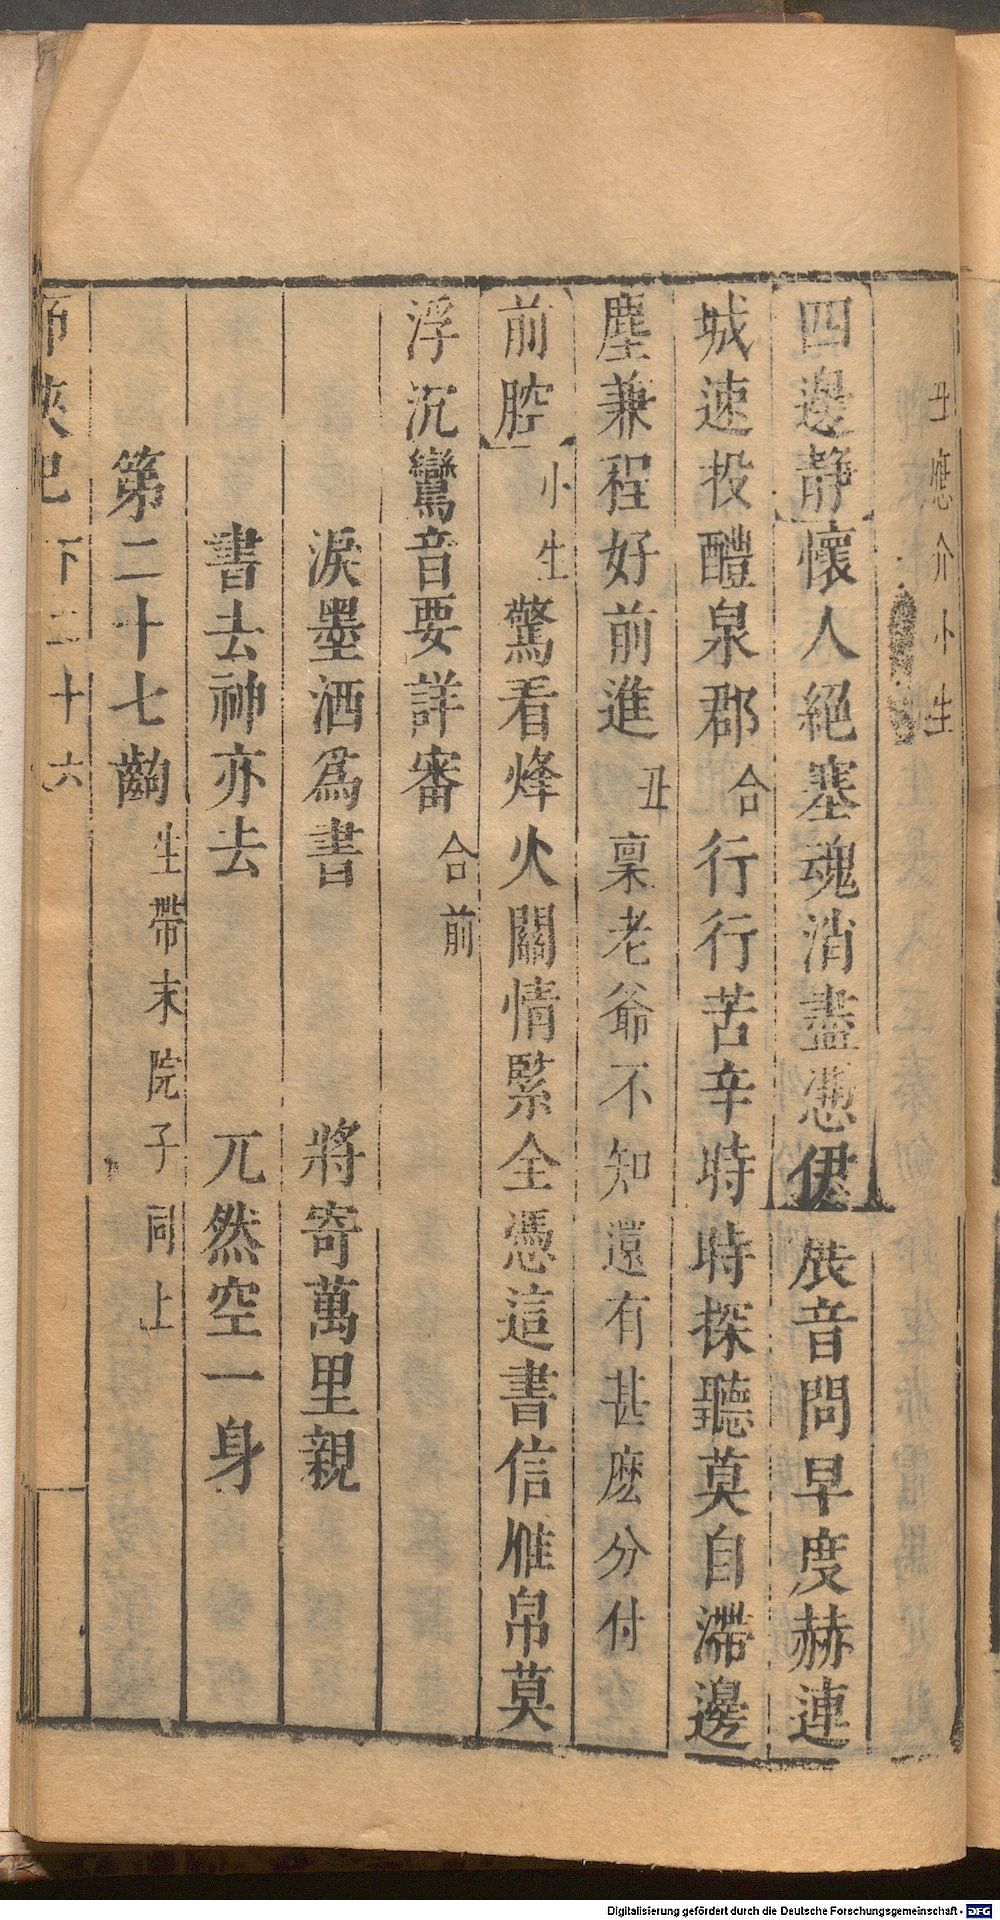 丑應介小生
四邊靜懷人絕塞魂消盡憑伊展音問早度赫連
城速投醴泉郡合行行苦辛時時探聽莫自滯邊
塵兼程好前進丑稟老爺不知還有甚麽分付
前腔小生驚看烽火關情緊全憑這書信雁帛莫
浮沉鸞音要詳審合前
淚墨洒爲書 將寄萬里親
書去神亦去 兀然空一身
第二十七齣生帶末院子同上
記 下 二十六
Digitalisierung gefördert durch die Deutsche Forschungsgemeinschaft - DFG